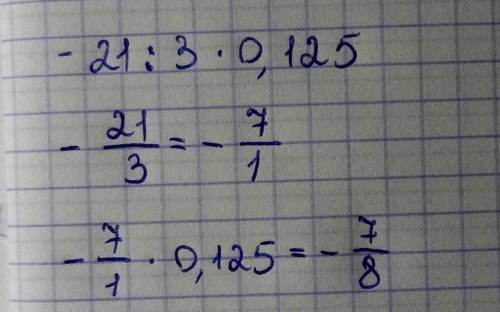 - 21 : 3 · 0,125
- 21/3 = - 7/1
- 7/1 · 0,125 = - 7/8